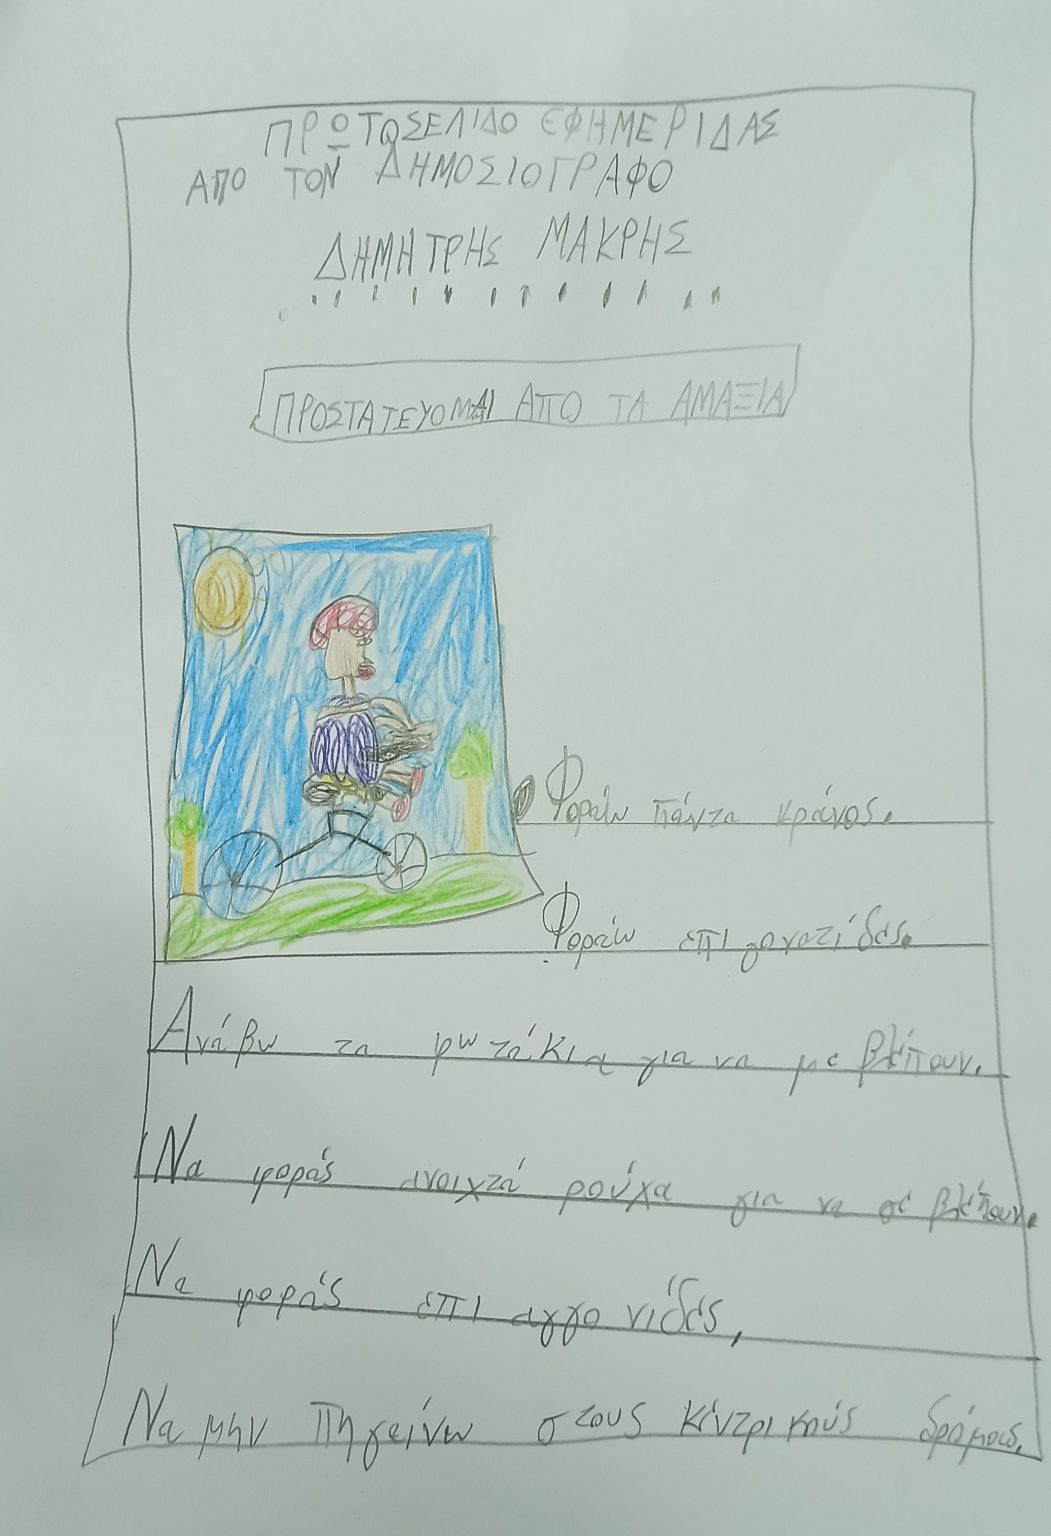 ΠΡΩΤΟΣΕΛΙΔΟ ΕΦΗΜΕΡΙΔΑΣ
ΑΠΟ ΤΟΝ ΔΗΜΟΣΙΟΓΡΑΦΟ
ΔΗΜΗΤΡΗΣ ΜΑΚΡΗΣ
ΠΡΟΣΤΑΤΕΥΟΜΑΙ ΑΠΟ ΤΑ ΑΜΑΞΙΑ
Φοράω πάντα κράνος.
Φοράω επιγονατίδες.
Ανάβω τα φωτάκια για να με βλέπουν.
Να φοράς ανοιχτά ρούχα για να σε βλέπουν.
Να φοράς επιαγγονιδες,
Να μην πηγείνω στους κέντρικούς δρόμους.